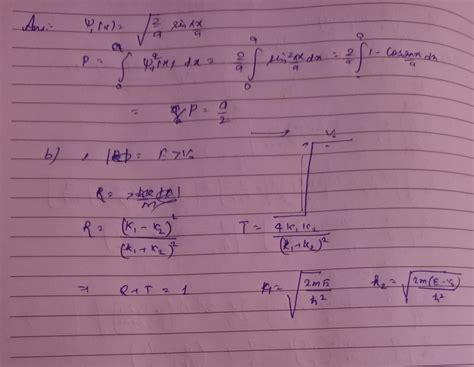 Ans:- ψ₁(x) = √(2/a) sin πx/a
P = ∫₀ᵃ ψ₁²(x) dx = 2/a ∫₀ᵃ sin² πx/a dx = 2/a ∫ᵃ 1 - cos 2πx/a dx
= P = a/2
b) E > V₀
V₀
R =
R = (K₁ - K₂)² / (K₁ + K₂)² T = 4K₁K₂ / (k₁ + k₂)²
⇒ R + T = 1 k₁ = √(2mE/ħ²) k₂ = √(2m(E - V₀)/ħ²)